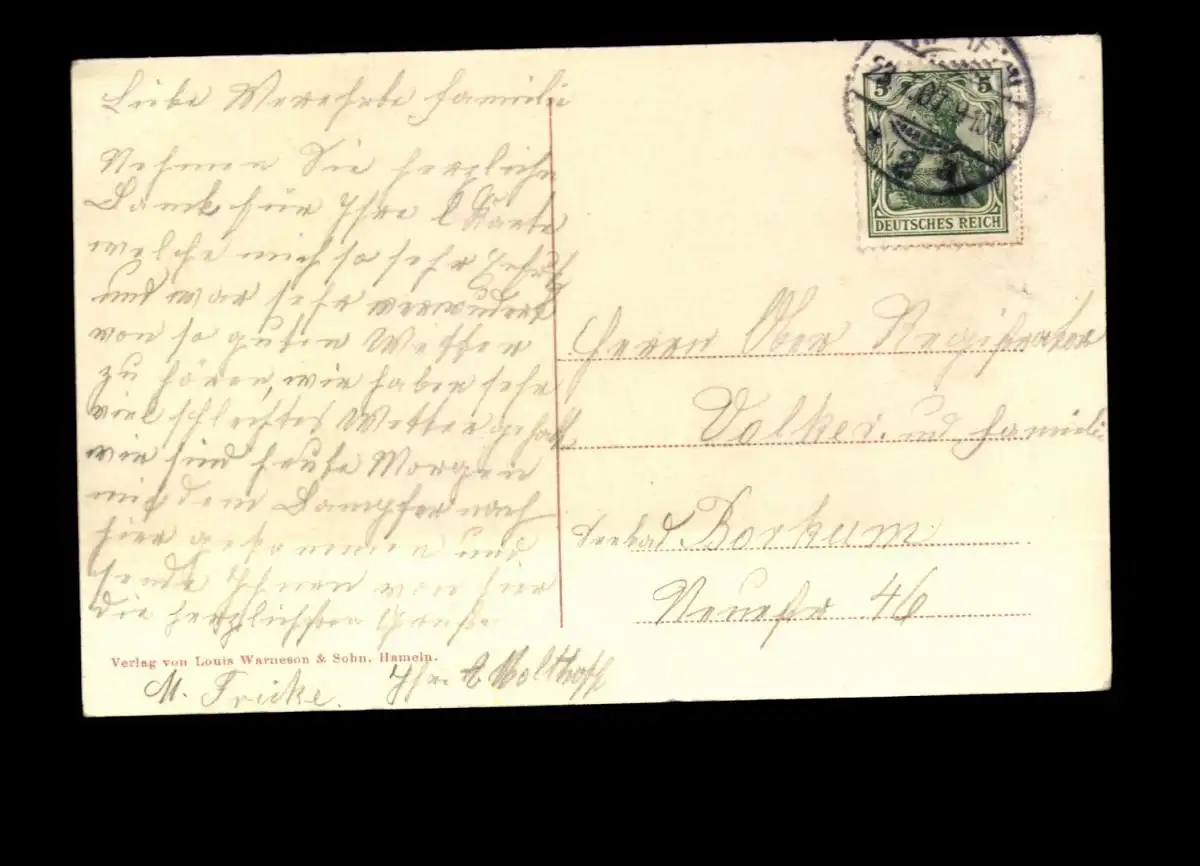 Liebe Werehrte Familie
Nehmen Sie herzlichen
Dank für Ihre l Karte
welche mich so sehr gefreut
und war sehr verwundert
von so guten Wetter
zu hören, wir haben sehr
viel schlechtes Wetter gehabt
wir sind heute Morgen
mit dem Dampfer nach
hier gekommen und
sende Ihnen von hier
die herzlichsten Grüße
Ihr A Molthoff
M. Fricke.
Verlag von Louis Warneson & Sohn, Hameln.
5 5
9-10
DEUTSCHES REICH
Herrn Ober Registrator
Volker. und Familie
Seebad Borkum
Neuestr 46